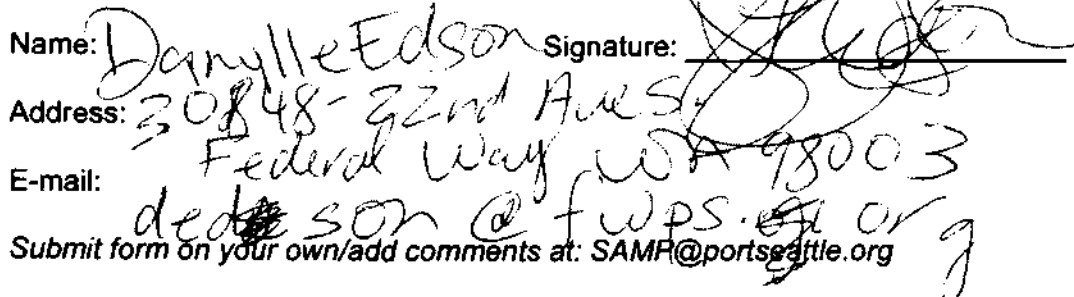 Name: Danylle Edson Signature:
Address: 30848-22nd Ave S.
Federal Way WA 98003
E-mail:
dedson@fwps.org
Submit form on your own/add comments at: SAMP@portseattle.org